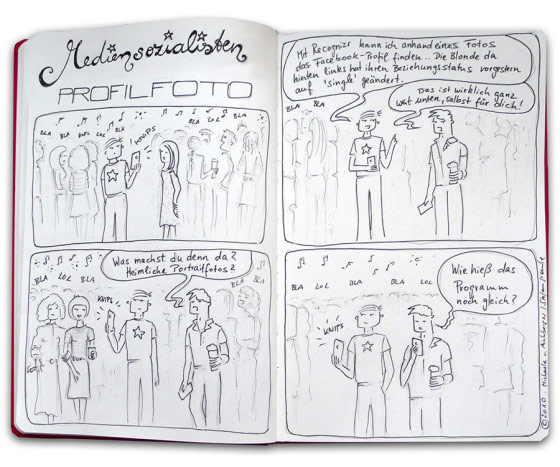 Mediensozialisten
PROFILFOTO
BLA
BLA
BLA
LOL
BLA
BLA
KNIPS
Was machst du denn da?
Heimliche Portraitfotos?
BLA
LOL
BLA
BLA
BLA
KNIPS
Mit Recognizr kann ich anhand eines Fotos
das Facebook-Profil finden... Die Blonde da
hinten links hat ihren Beziehungsstatus vorgestern
auf 'single' geändert.
Das ist wirklich ganz
weit unten, selbst für dich!
BLA BLA
Wie hieß das
Programm
noch gleich?
BLA
LOL
BLA
BLA
LOL
KNIPS